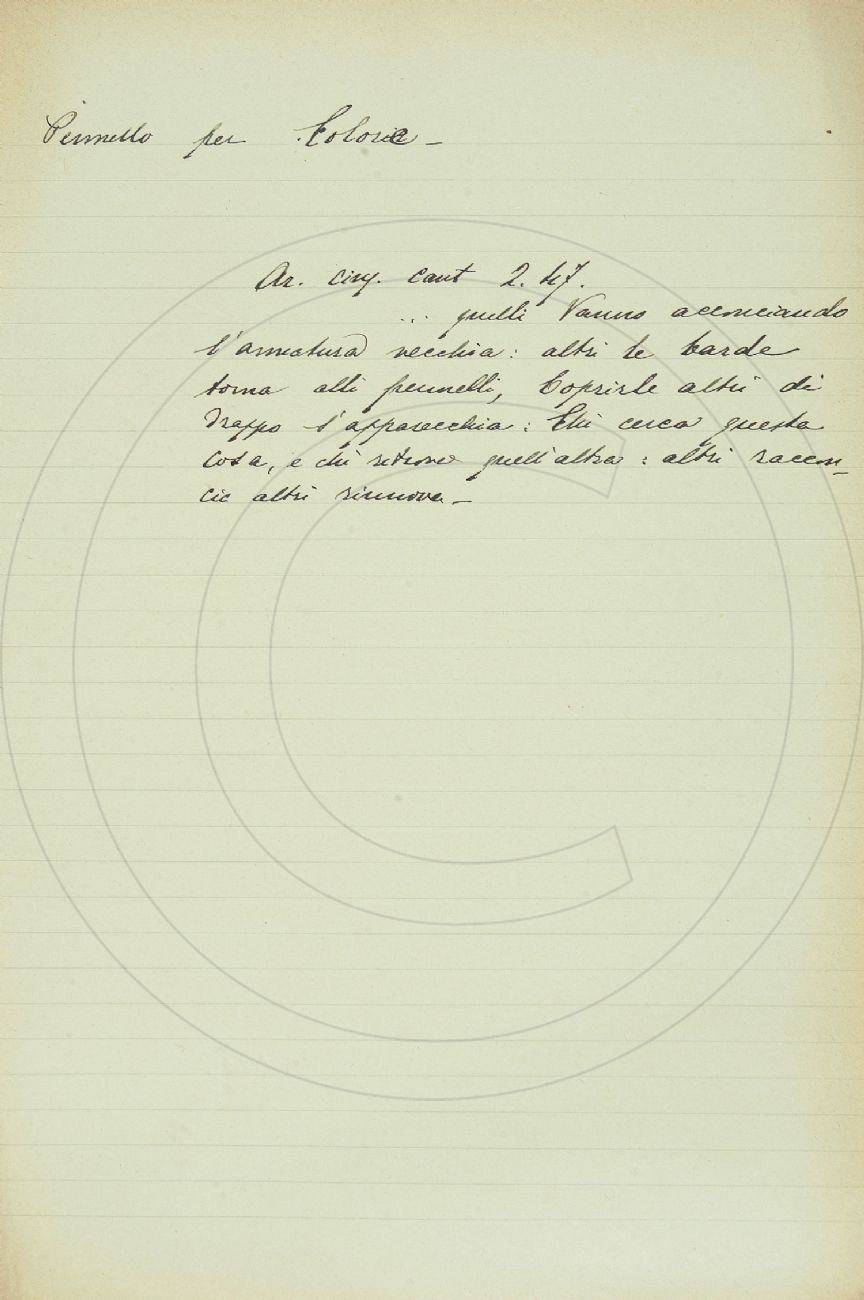 Pennello per Colorie –
Ar. cinq. cant 2. 47.
... quelli Vanno acconciando
l'armatura vecchia: altri le barde
torna alli pennelli, Coprirle altri di
Drappo s'apparecchia: Chi cerca questa
cosa, e chi ritrova quell'altra: altri raccon_
cia altri rinnova –